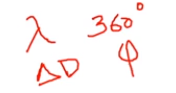 λ 360°
ΔD φ